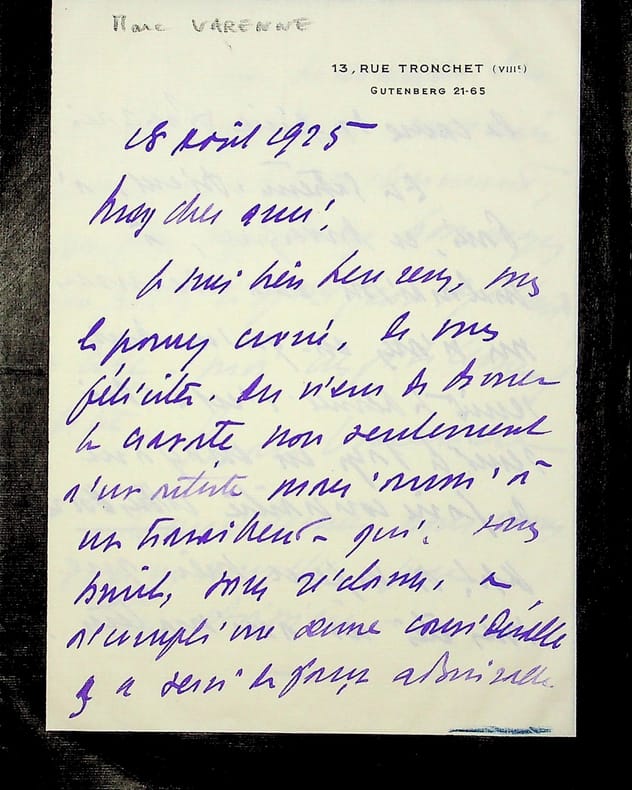 Marc VARENNE
13, RUE TRONCHET (VIIIE)
GUTENBERG 21-65
18 août 1925
Mon cher ami,
Je suis bien heureux, vous
le pouvez croire, de vous
féliciter. On vient de donner
la cravate non seulement
à un artiste mais aussi à
un travailleur qui, sans
bruit, sans réclame, a
accompli une œuvre considérable
et a servi